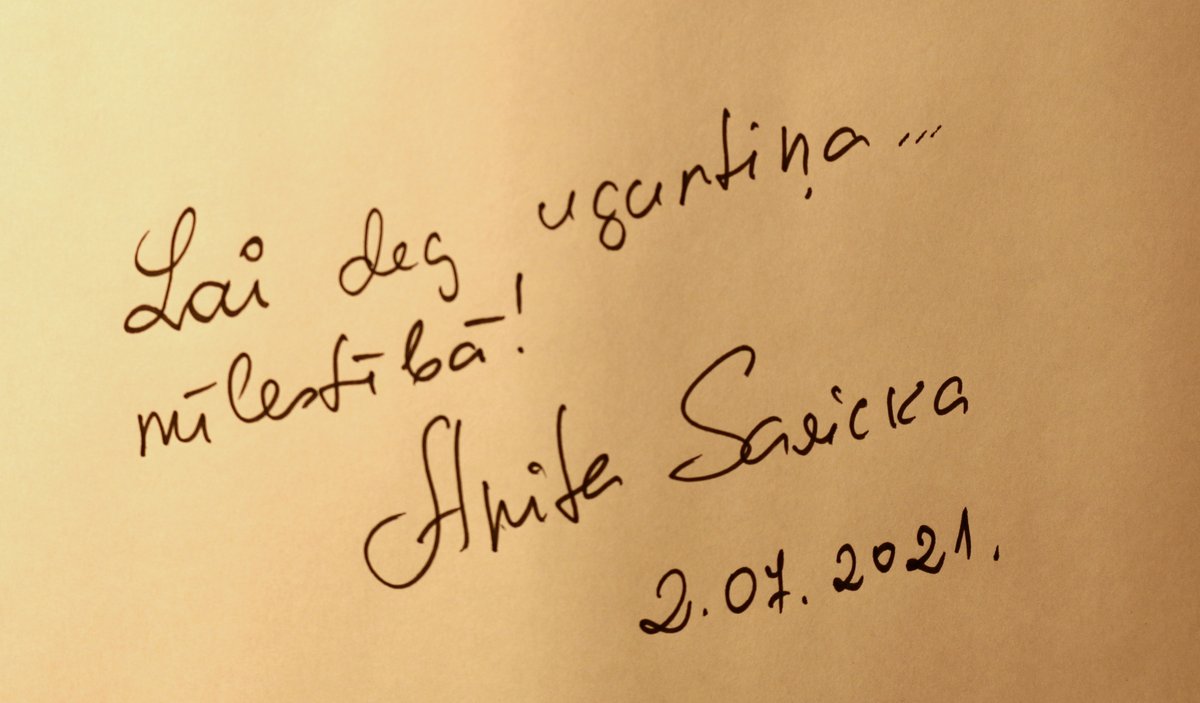 Lai deg uguntiņa...
mīlestībā!
Anita Savicka
2.07.2021.